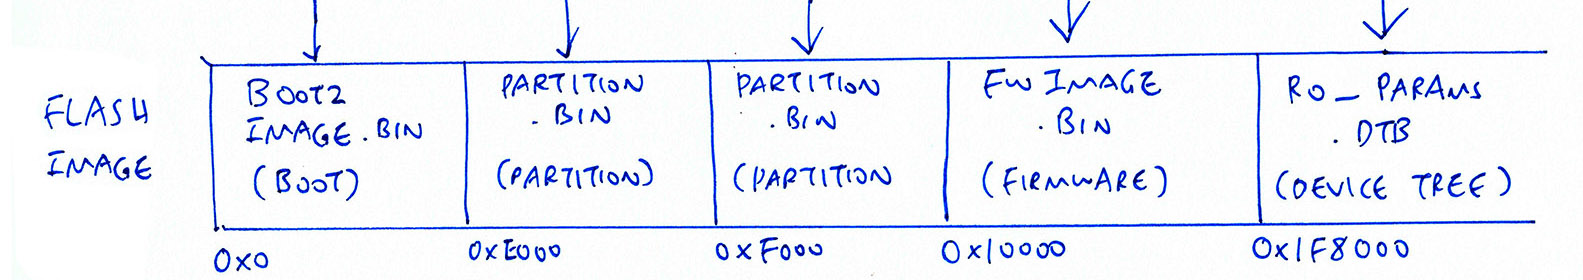 FLASH
IMAGE
BOOT2
IMAGE.BIN
(BOOT)
PARTITION
.BIN
(PARTITION)
PARTITION
.BIN
(PARTITION
FW IMAGE
.BIN
(FIRMWARE)
RO_PARAMS
.DTB
(DEVICE TREE)
0x0
0xE000
0xF000
0x10000
0x1F8000